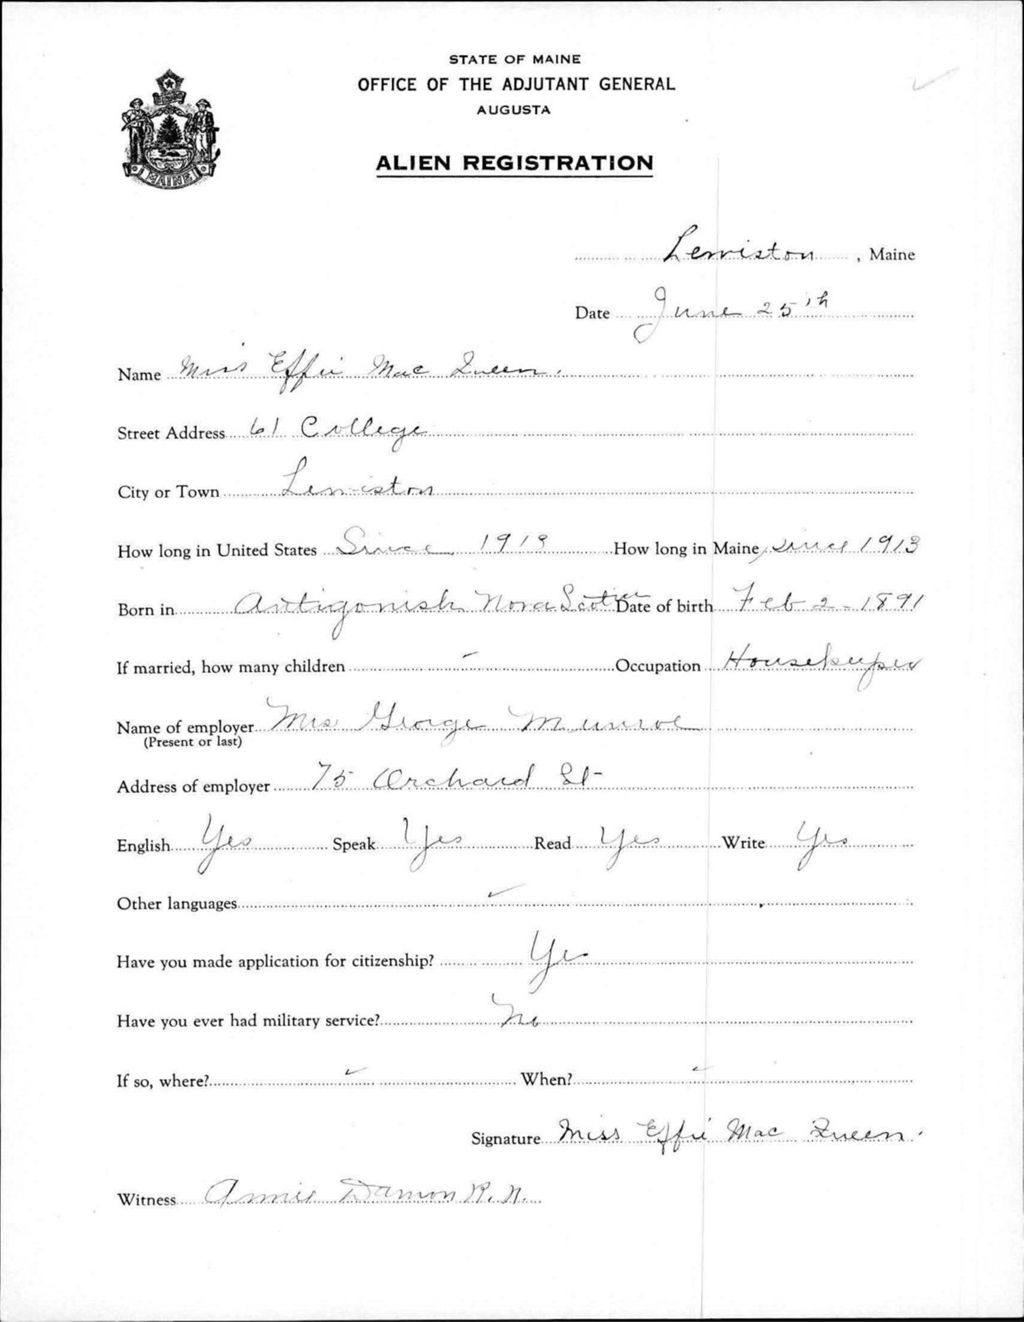 STATE OF MAINE
OFFICE OF THE ADJUTANT GENERAL
AUGUSTA
ALIEN REGISTRATION
MAINE
Lewiston, Maine
Date June 25th
Name Miss Effie Mac Queen.
Street Address 61 College
City or Town Lewiston
How long in United States Since 1913 How long in Maine since 1913
Born in Antigonish Nova Scotia Date of birth Feb 2 - 1891
If married, how many children - Occupation Housekeeper
Name of employer Mrs George Munroe
(Present or last)
Address of employer 75 Orchard St-
English Yes Speak Yes Read Yes Write Yes
Other languages
Have you made application for citizenship? Yes
Have you ever had military service? No
If so, where? When?
Signature Miss Effie Mac Queen.
Witness Annie Damon R. N.